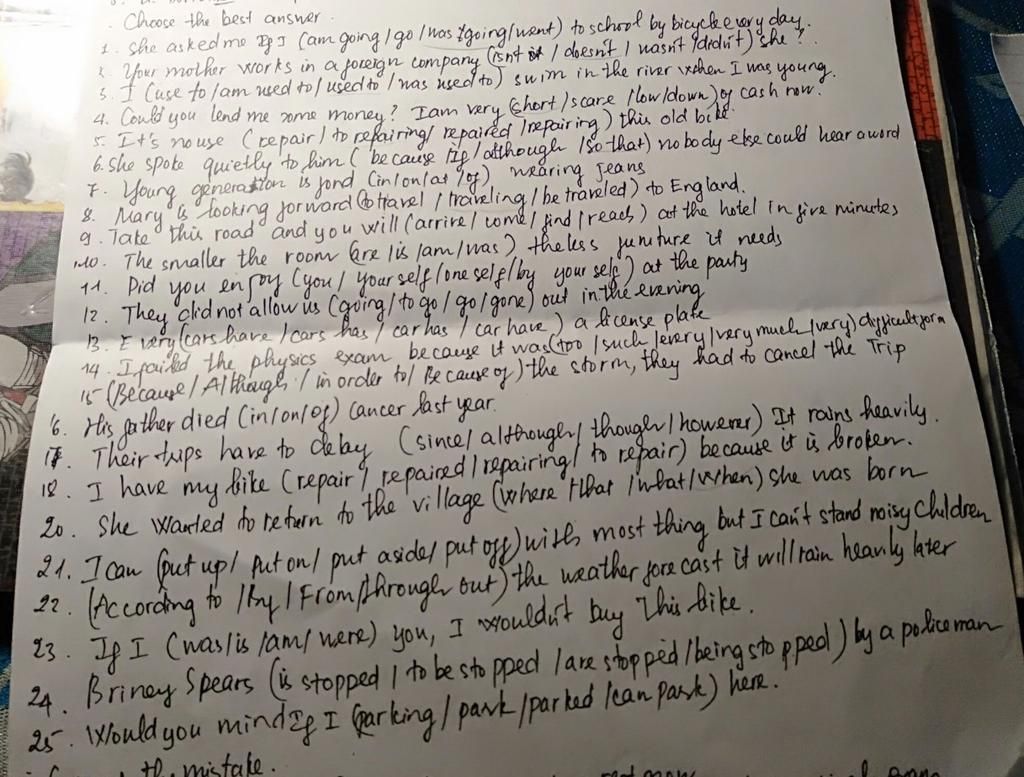 Choose the best answer.
1. She asked me If I (am going / go / was going / went) to school by bicycle every day.
2. Your mother works in a foreign company (isn't / doesn't / wasn't / didn't) she?
3. I (use to / am used to / used to / was used to) swim in the river when I was young.
4. Could you lend me some money? I am very (short / scare / low / down) of cash now.
5. It's no use (repair / to repairing / repaired / repairing) this old bike.
6. She spoke quietly to him (because / If / although / so that) nobody else could hear a word
7. Young generation is fond (in / on / at / of) wearing Jeans
8. Mary is looking forward (to travel / traveling / be traveled) to England.
9. Take this road and you will (arrive / come / find / reach) at the hotel in five minutes
10. The smaller the room (are / is / am / was) the less juniture it needs
11. Did you enjoy (you / yourself / oneself / by yourself) at the party
12. They did not allow us (going / to go / go / gone) out in the evening
13. Every (cars have / cars has / car has / car have) a license plate
14. I failed the physics exam because it was (too / such / every / very much / very) difficult form
15 (Because / Although / in order to / Because of) the storm, they had to cancel the Trip
6. His father died (in / on / of) cancer last year.
17. Their trips have to delay (since / although / though / however) It rains heavily.
18. I have my bike (repair / repaired / repairing / to repair) because it is broken.
20. She wanted to return to the village (where / that / what / when) she was born
21. I can (put up / put on / put aside / put off) with most thing but I can't stand noisy children
22. (According to / By / From / through out) the weather fore cast it will rain heavily later
23. If I (was / is / am / were) you, I wouldn't buy This bike.
24. Briney Spears (is stopped / to be stopped / are stopped / being stopped) by a policeman
25. Would you mind If I (parking / park / parked / can park) here.
the mistake.